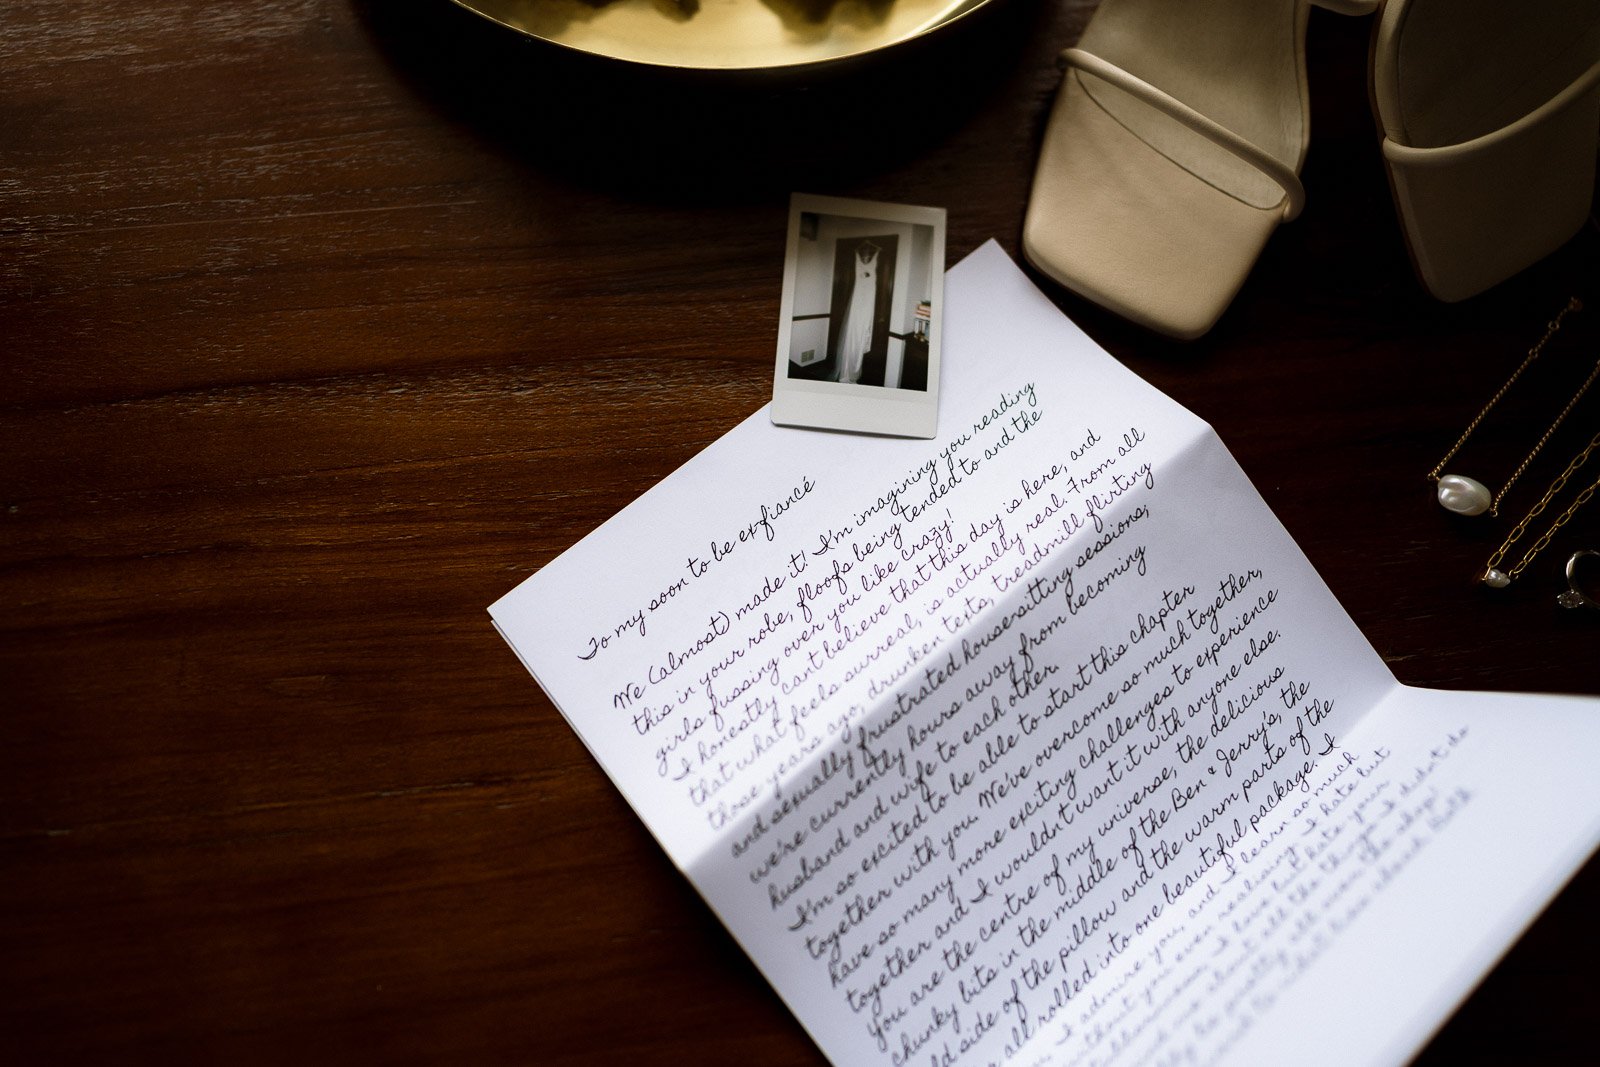 To my soon to be ex-fiancé
We (almost) made it! I'm imagining you reading
this in your robe, floofs being tended to and the
girls fussing over you like crazy!
I honestly can't believe that this day is here, and
that what feels surreal, is actually real. From all
those years ago, drunken texts, treadmill flirting
and sexually frustrated housesitting sessions,
we're currently hours away from becoming
husband and wife to each other.
I'm so excited to be able to start this chapter
together with you. We've overcome so much together,
have so many more exciting challenges to experience
together and I wouldn't want it with anyone else.
you are the centre of my universe, the delicious
chunky bits in the middle of the Ben & Jerry's, the
ld side of the pillow and the warm parts of the
all rolled into one beautiful package. I
I admire you, and I learn so much
without you even realising. I hate but
I love but hate your
all the things I didn't do